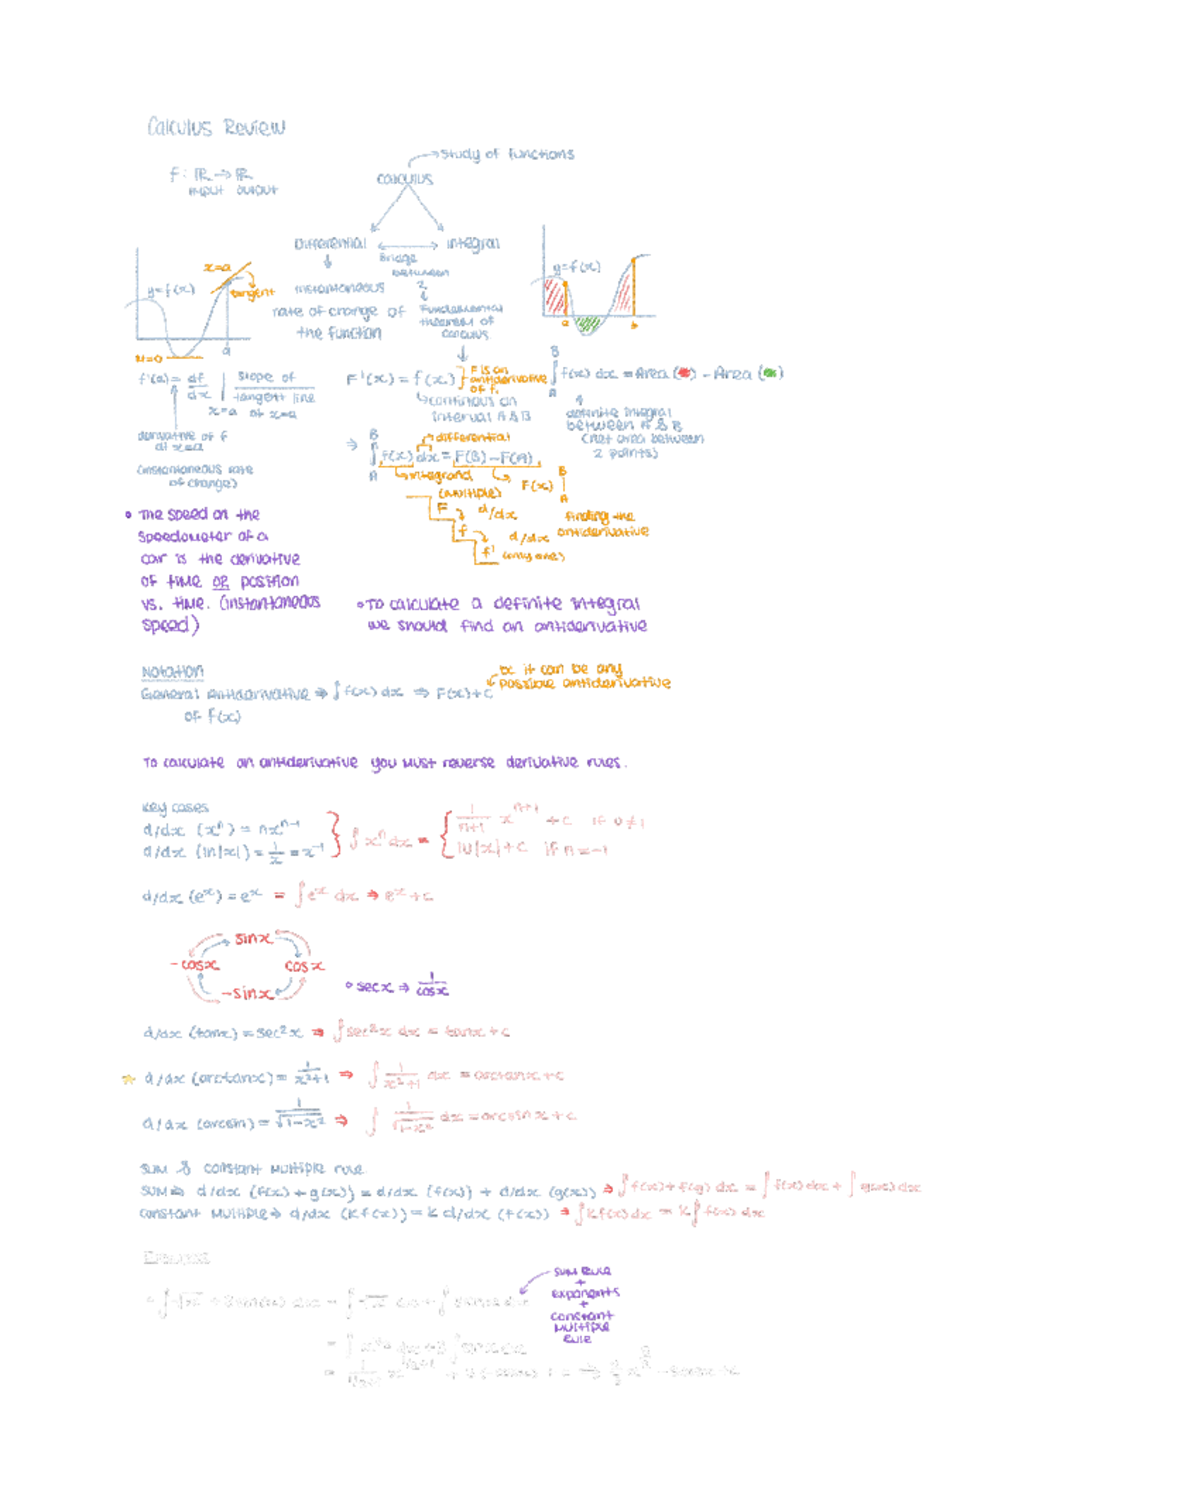 Calculus Review
study of functions
f: ℝ → ℝ
input output
calculus
Differential ↔ integral
Bridge
between
2
y=f(x)
x=a
tangent
a
m=0
instantaneous
rate of change of
the function
Fundamental
theorem of
calculus
y=f(x)
a
b
f'(a) = df/dx | x=a
slope of
tangent line
at x=a
derivative of f
at x=a
(instantaneous rate
of change)
F'(x) = f(x)
F is an
antiderivative
of f.
continuous on
interval A & B
∫_A^B f(x) dx = Area ( ) - Area ( )
definite integral
between A & B
(net area between
2 points)
⇒ ∫_A^B f(x) dx = F(B) - F(A)
differential
integrand
F(x) |_A^B
(multiple)
F d/dx
f d/dx
f' (only one)
finding the
antiderivative
• The speed on the
speedometer of a
car is the derivative
of time OR position
vs. time. (instantaneous
speed)
• To calculate a definite integral
we should find an antiderivative
Notation
General Antiderivative ⇒ ∫f(x) dx ⇒ F(x)+c
of f(x)
bc it can be any
possible antiderivative
To calculate an antiderivative you must reverse derivative rules.
key cases
d/dx (xⁿ) = nxⁿ⁻¹
d/dx (ln|x|) = 1/x = x⁻¹
∫xⁿ dx = { 1/(n+1) xⁿ⁺¹ + c if n≠1
ln|x| + c if n=-1
d/dx (eˣ) = eˣ = ∫eˣ dx ⇒ eˣ + c
sinx
-cosx cosx
-sinx
• secx ⇒ 1/cosx
d/dx (tanx) = sec²x ⇒ ∫sec²x dx = tanx + c
☆ d/dx (arctanx) = 1/(x²+1) ⇒ ∫ 1/(x²+1) dx = arctanx + c
d/dx (arcsin) = 1/√(1-x²) ⇒ ∫ 1/√(1-x²) dx = arcsin x + c
sum & constant multiple rule
sum ⇒ d/dx (f(x) + g(x)) = d/dx (f(x)) + d/dx (g(x)) ⇒ ∫f(x) + f(g) dx = ∫f(x) dx + ∫g(x) dx
constant multiple ⇒ d/dx (kf(x)) = k d/dx (f(x)) ⇒ ∫kf(x) dx = k∫f(x) dx
sum rule
+
exponents
+
constant
multiple
rule